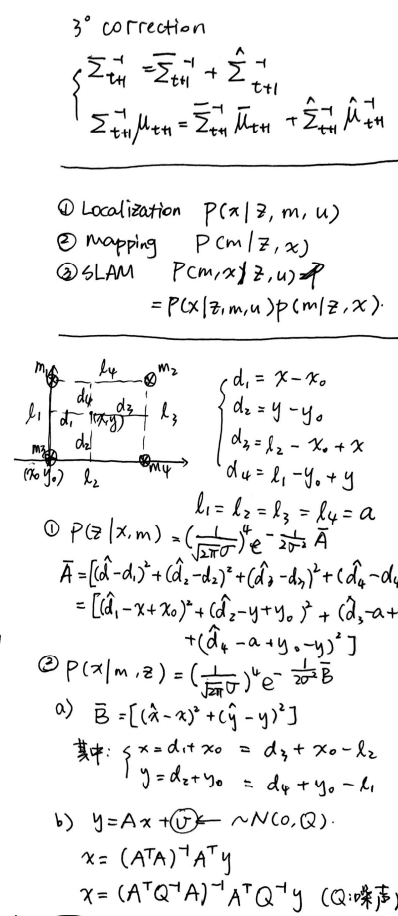 3° correction
Σ_{t+1}^{-1} = Σ̄_{t+1}^{-1} + Σ̂_{t+1}^{-1}
Σ_{t+1}^{-1} μ_{t+1} = Σ̄_{t+1}^{-1} μ̄_{t+1} + Σ̂_{t+1}^{-1} μ̂_{t+1}^{-1}
① Localization P(x|z, m, u)
② mapping P(m|z, x)
③ SLAM P(m, x|z, u)
= P(x|z, m, u) p(m|z, x).
m₁ l₄ m₂
d₄
l₁ d₁ (x,y) d₃ l₃
d₂
m₃ m₄
(x₀ y₀) l₂
d₁ = x - x₀
d₂ = y - y₀
d₃ = l₂ - x₀ + x
d₄ = l₁ - y₀ + y
l₁ = l₂ = l₃ = l₄ = a
① P(z|x, m) = (1/(√2π σ))⁴ e^{-1/(2σ²) Ā}
Ā = [(d̂ - d₁)² + (d̂₂ - d₂)² + (d̂₃ - d₃)² + (d̂₄ - d₄
= [(d̂₁ - x + x₀)² + (d̂₂ - y + y₀)² + (d̂₃ - a +
+ (d̂₄ - a + y₀ - y)²]
② P(x|m, z) = (1/(√2π σ))⁴ e^{-1/(2σ²) B̄}
a) B̄ = [(x̂ - x)² + (ŷ - y)²]
其中: x = d₁ + x₀ = d₃ + x₀ - l₂
y = d₂ + y₀ = d₄ + y₀ - l₁
b) y = Ax + v ← ~N(0, Q).
x = (AᵀA)⁻¹ Aᵀ y
x = (AᵀQ⁻¹A)⁻¹ AᵀQ⁻¹ y (Q:噪声)